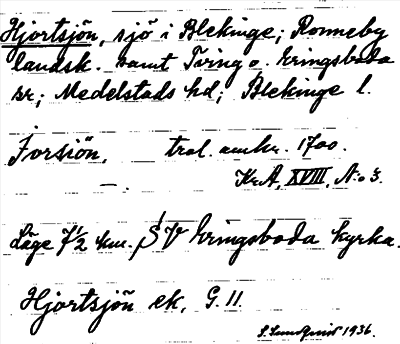 Hjortsjön, sjö i Blekinge; Ronneby
landsk. samt Tving o. Eringsboda
sr; Medelstads hd; Blekinge l.
Jorsiön, trol. omkr. 1700.
Kr.A, XVIII, N:o 3.
Läge 7½ km. SV Eringsboda kyrka.
Hjortsjön ek. G. 11.
S. Lundquist 1936.